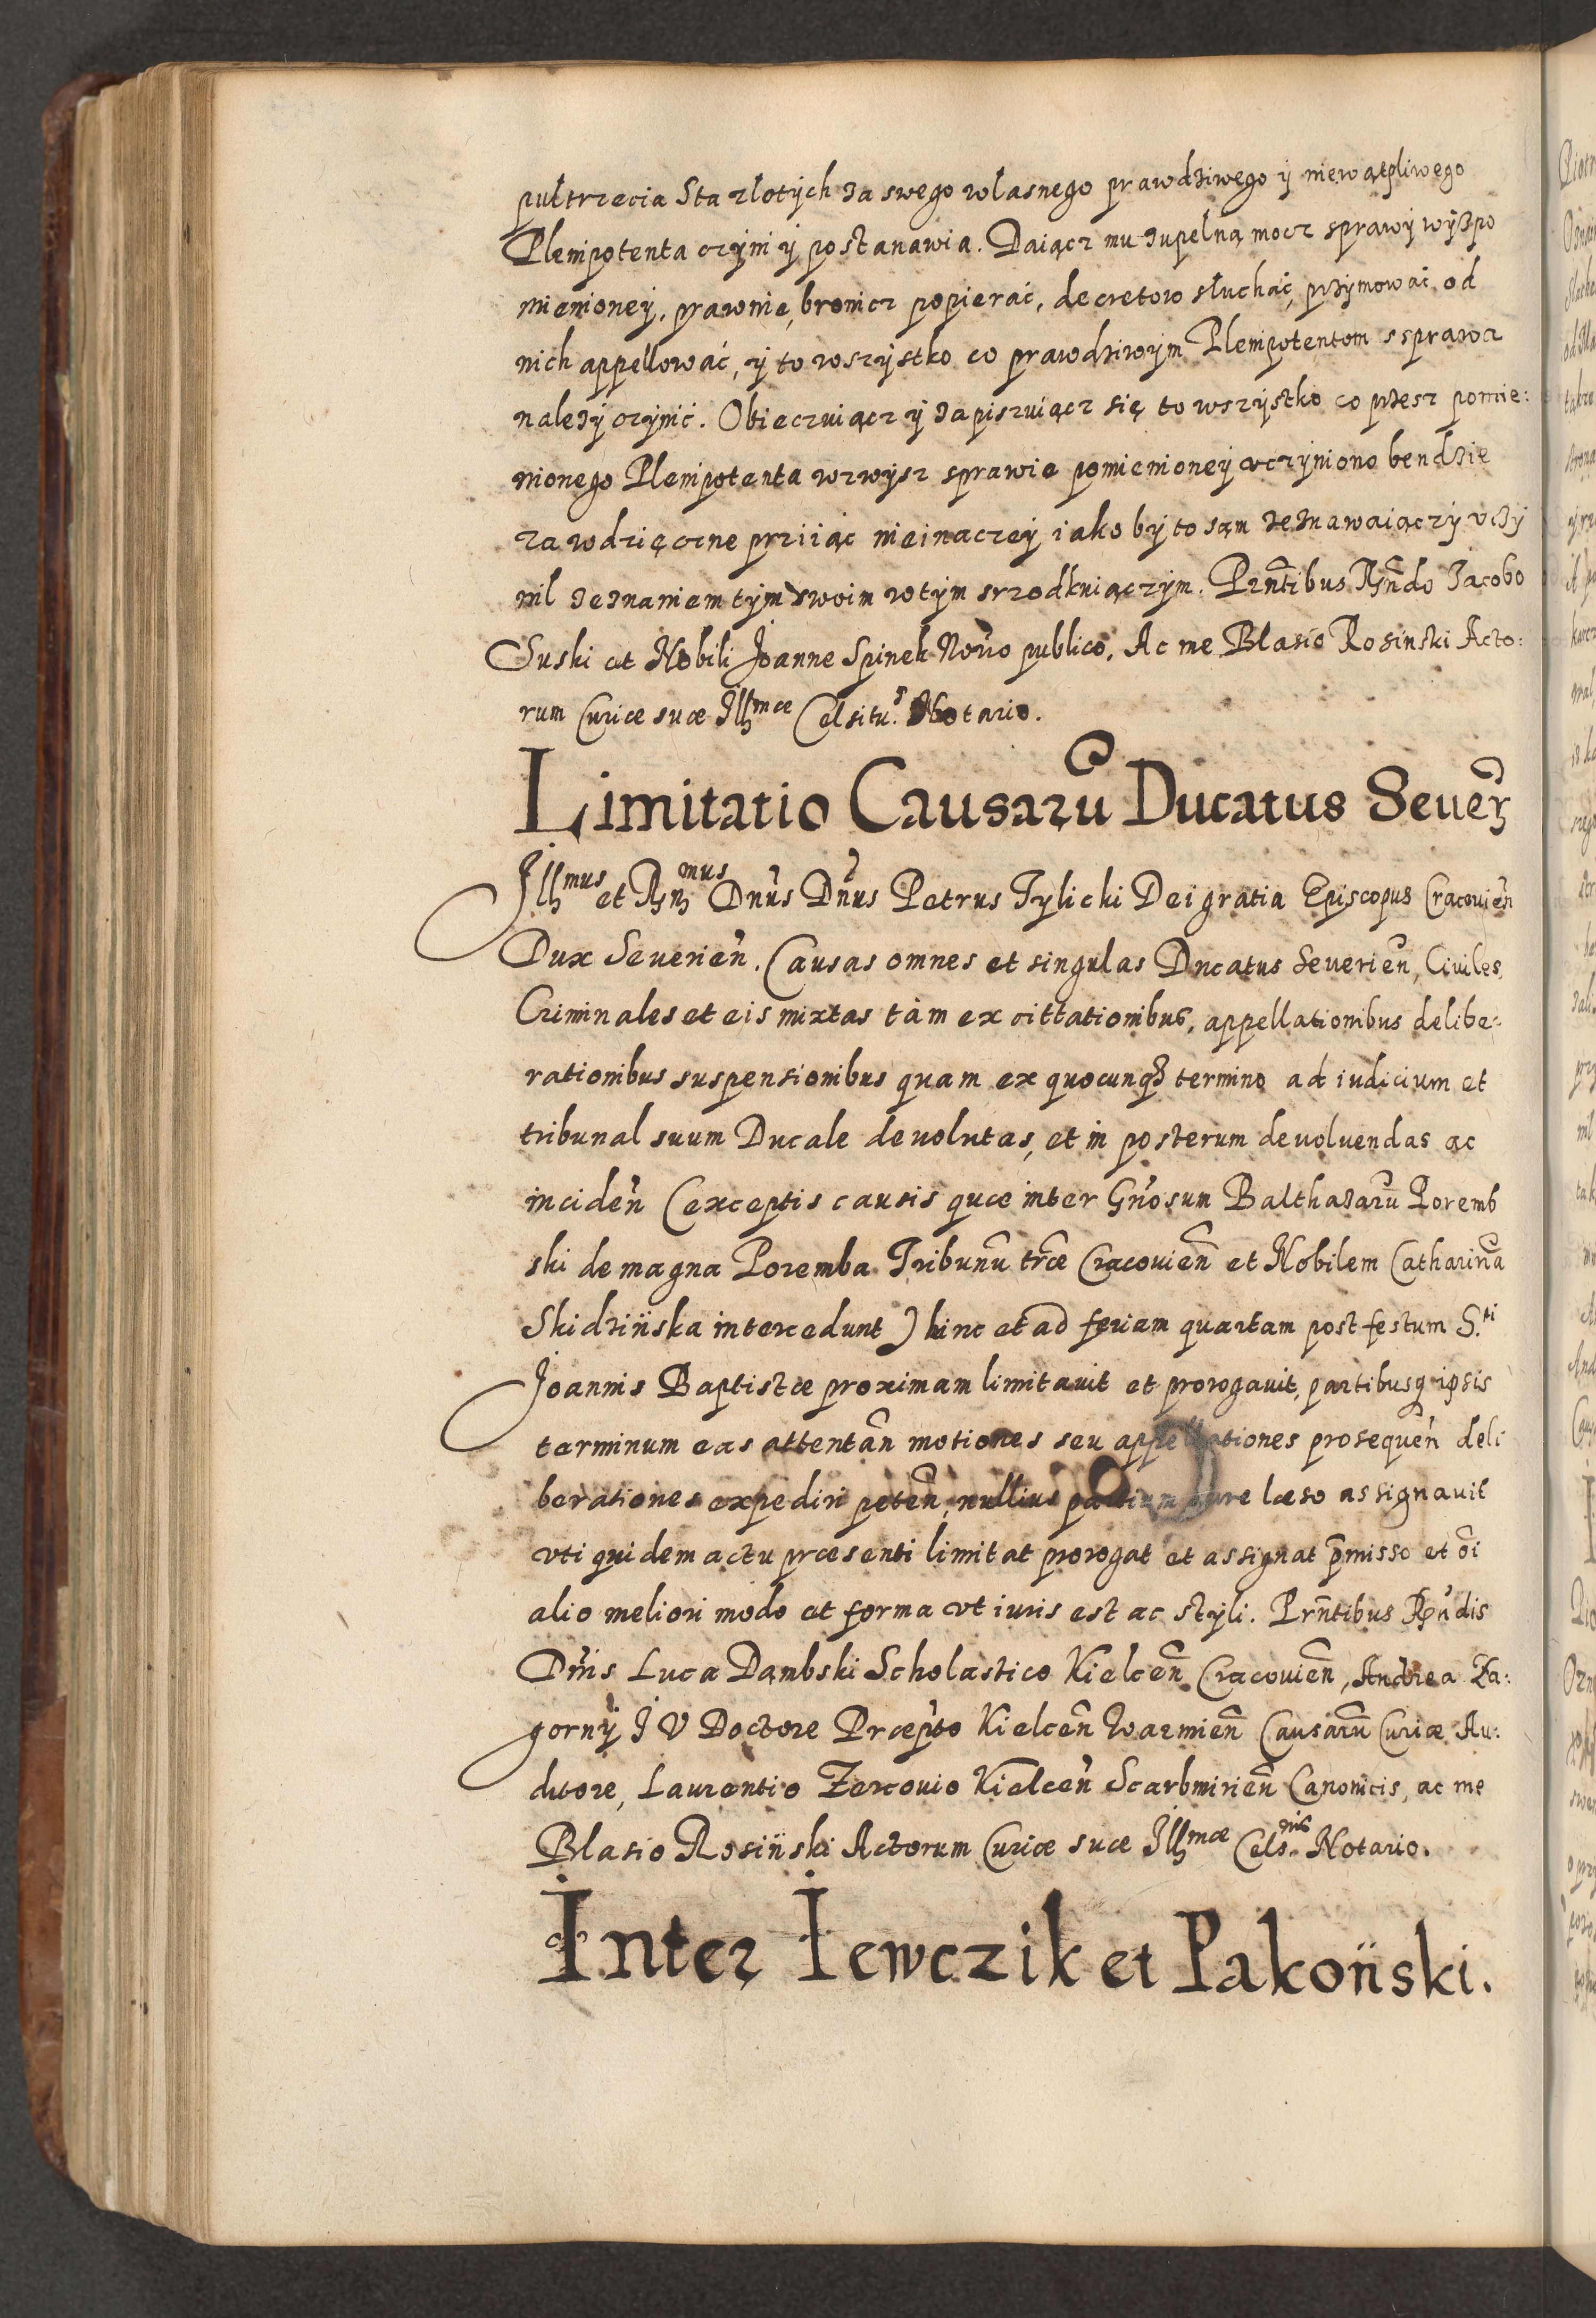 pułtrzecia Sta złotych za swego własnego prawdziwego y niewątpliwego
Plenipotenta czyni y postanawia. Daiącz mu zupełną mocz sprawy wyszpo
mienioney, prawnie, bronicz popierać, decretow słuchać, przymować od
nich appellować, y to wszystko co prawdziwym Plenipotentom s sprawa
należy czynić. Obieczuiącz y zapiszuiącz się to wszystko co przesz pomie:
nionego Plenipotenta wzwysz sprawie pomienioney uczyniono bendzie
za wdzięczne przyiąc nieinaczey iako by to sąm zeznawaiączy uczy
nil zeznaniem tym swoim w tym srzodkuiączym. Prñtibus Rñdo Jacobo
Suski et Nobili Joanne Spinek Noṙio publico. Ac me Blasio Rosinski Acto:
rum Curiæ suæ Illmæ Celsitu.s Notario.
Limitatio Causarū Ducatus Seuer
Illmus et Rmus Dnus Dnus Petrus Tylicki Dei gratia Episcopus Cracouien̄
Dux Seuerien̄. Causas omnes et singulas Ducatus Seuerien̄, Ciuiles,
Criminales et eis mixtas tàm ex cittationibus, appellationibus delibe:
rationibus suspensionibus quam ex quocunq₃ termino ad iudicium et
tribunal suum Ducale deuolutas, et in posterum deuoluendas ac
inciden̄ (exceptis causis quæ inter Gn̄osum Balthazarū Poremb
ski de magna Poremba Tribunū tr̄æ Cracouien̄ et Nobilem Catharinā
Skidzińska intercedunt) hinc et ad feriam quartam post festum S.ti
Joannis Baptistæ proximam limitauit et prorogauit, partibusq ipsis
terminum eas attentan̄ motiones seu appellationes prosequen̄ deli
berationes expediri peten̄, nullius partium iure læso assignauit
vti quidem actu præsenti limitat prorogat et assignat p̄misso et oī
alio meliori modo et forma vt iuris est ac styli. Prñtibus Rñdis
Dn̄is Luca Dąmbski Scholastico Kielcen̄ Cracouien̄, Andrea Za:
gorny J V Doctore Præp̄to Kielcen̄ Warmien̄ Causarū Curiæ Au:
ditore, Laurentio Zercouio Kielcen̄ Scarbmirien̄ Canonicis, ac me
Blasio Rosiński Actorum Curiæ suæ Illmæ Cels.nis Notario.
Inter Iewczik et Pakoński.